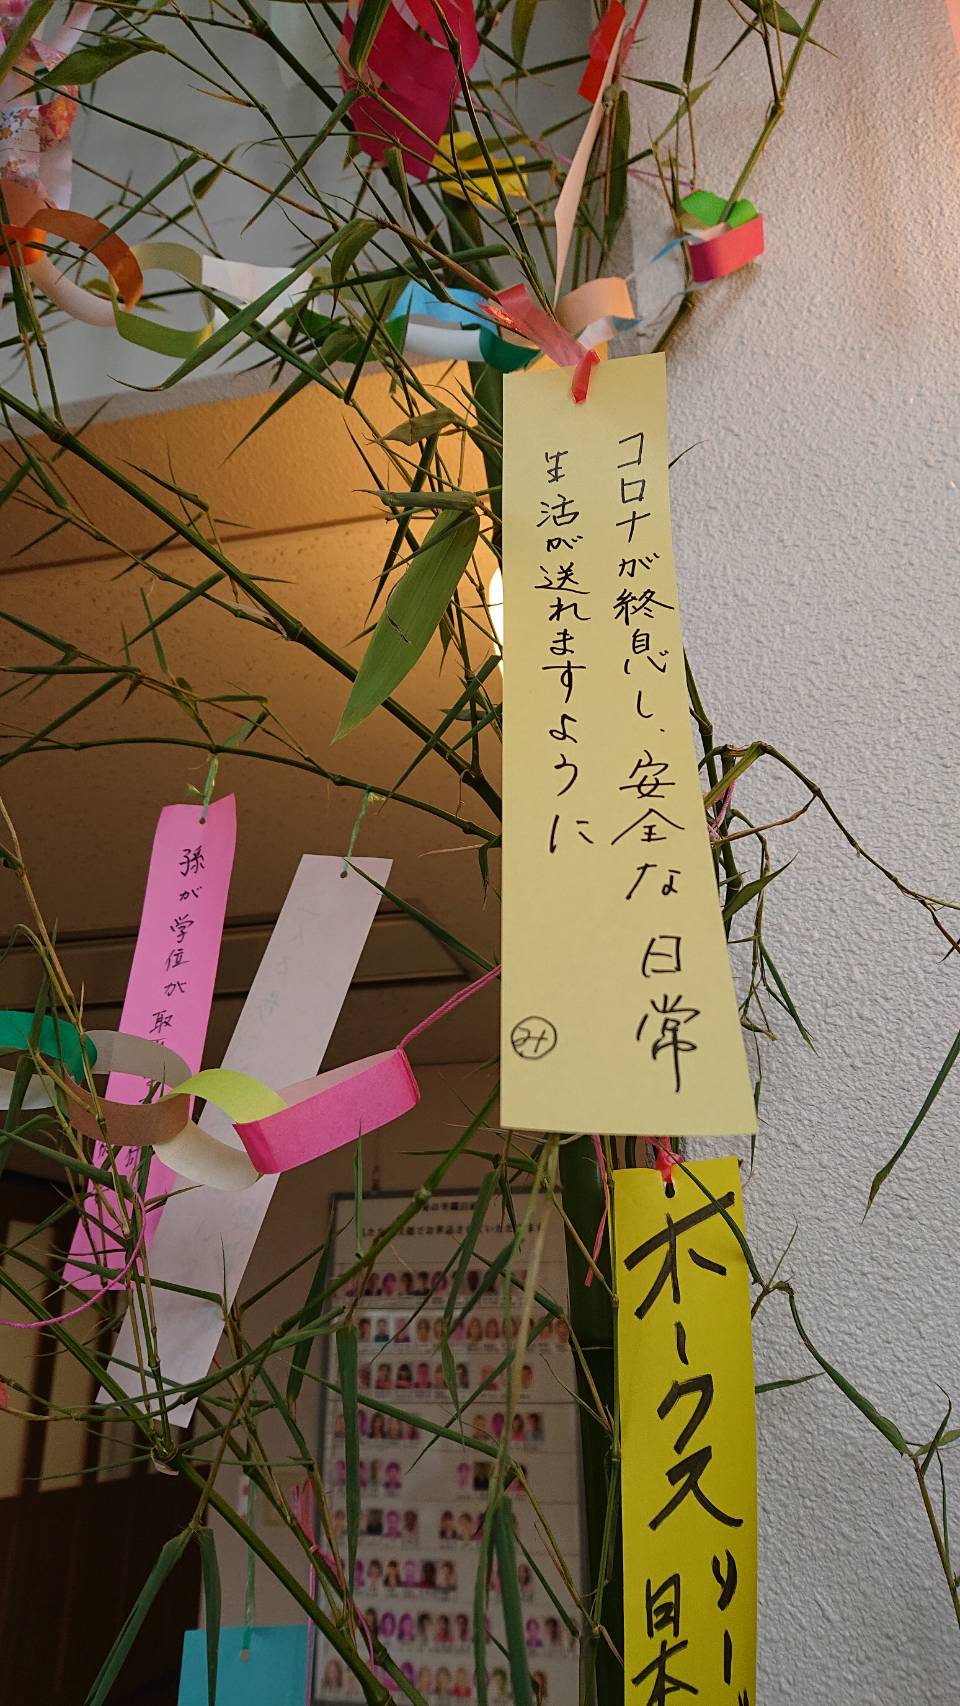 コロナが終息し、安全な日常
生活が送れますように
み
孫が学位が
取
ホークス
リー
日本